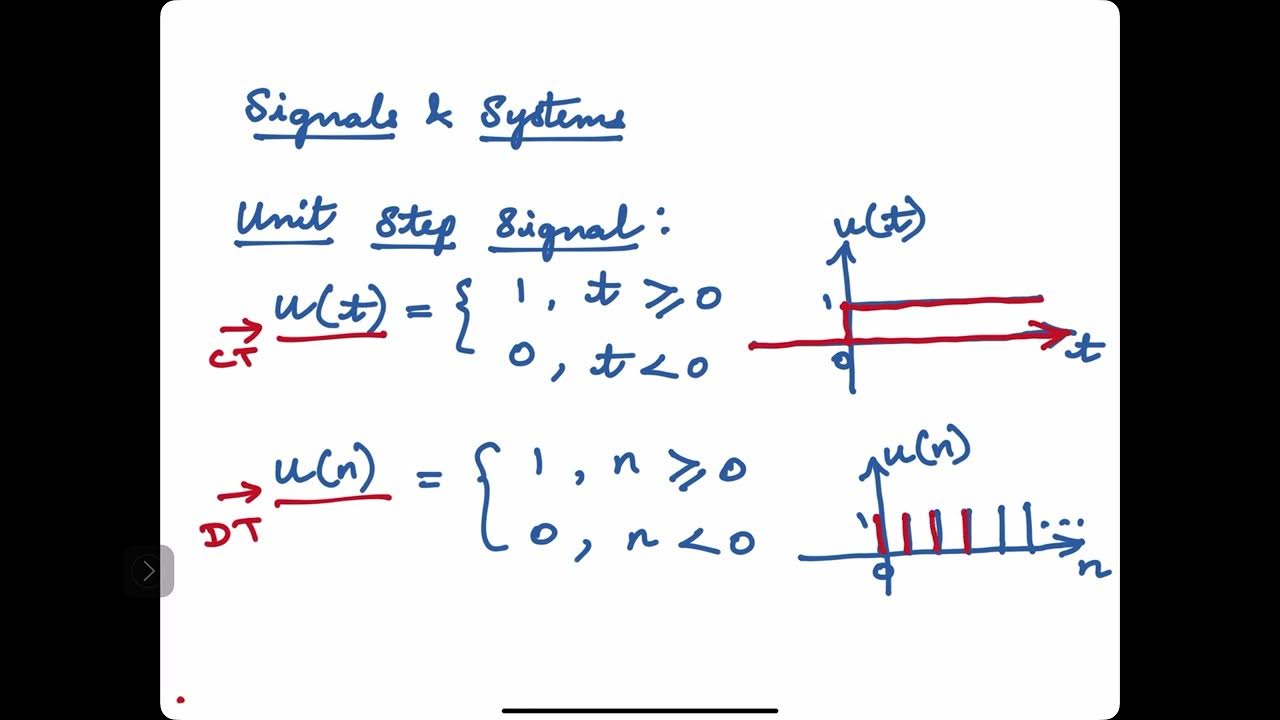 Signals & Systems
Unit Step Signal:
u(t) = { 1, t ⩾ 0
0, t < 0
CT
u(t)
1
0
t
u(n) = { 1, n ⩾ 0
0, n < 0
DT
u(n)
1
...
0
n